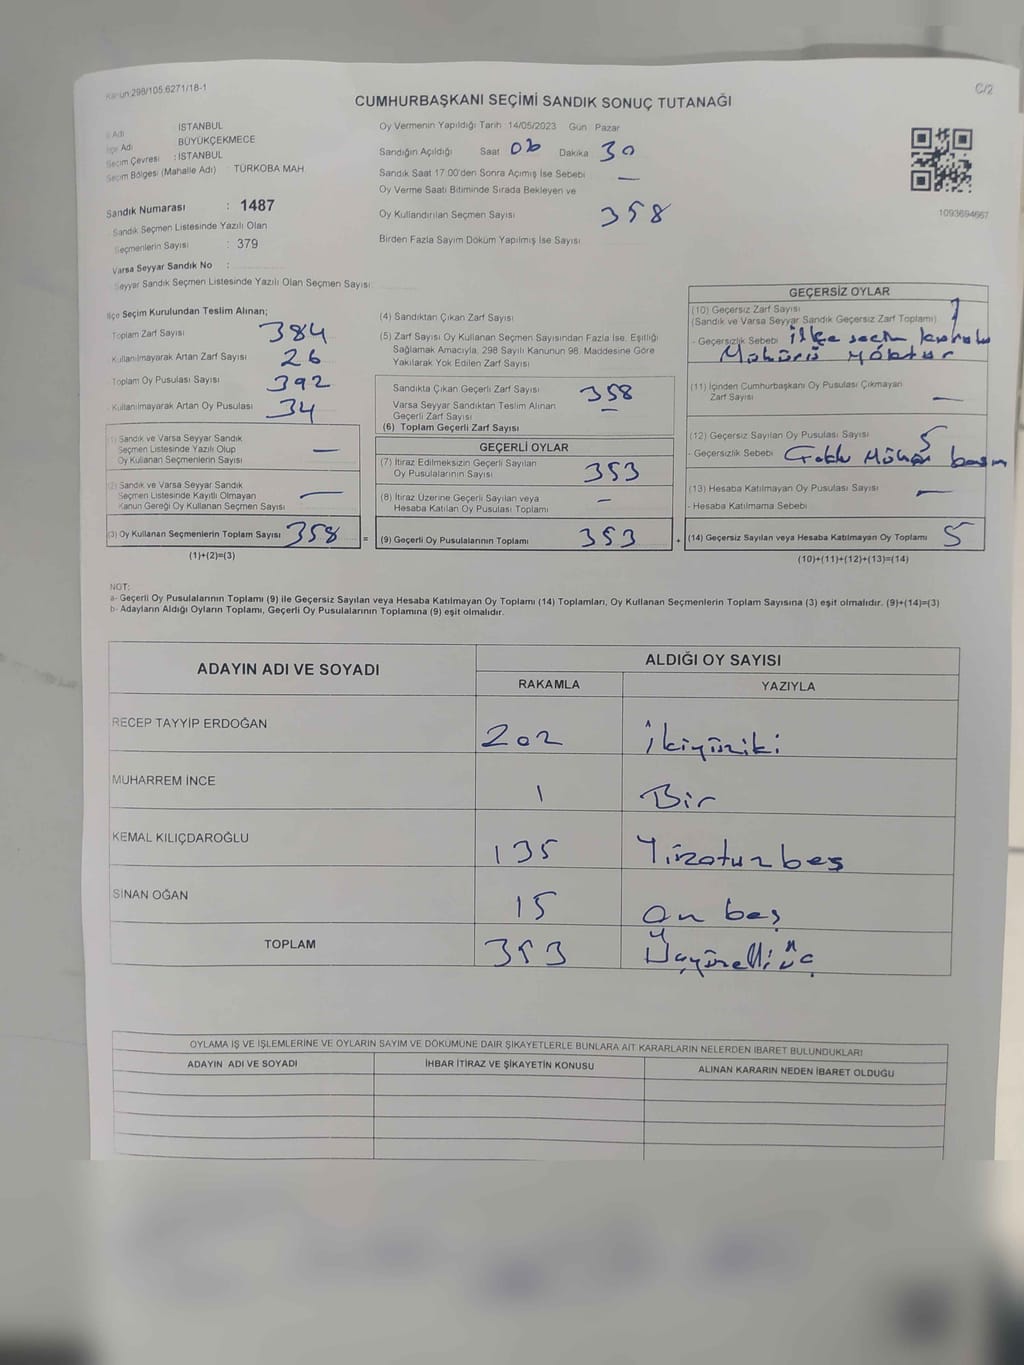 Kanun:298/105.6271/18-1
C/2
CUMHURBAŞKANI SEÇİMİ SANDIK SONUÇ TUTANAĞI
İl Adı İSTANBUL
İlçe Adı BÜYÜKÇEKMECE
Seçim Çevresi : İSTANBUL
Seçim Bölgesi (Mahalle Adı) TÜRKOBA MAH
Sandık Numarası : 1487
Sandık Seçmen Listesinde Yazılı Olan
Seçmenlerin Sayısı : 379
Varsa Seyyar Sandık No :
Seyyar Sandık Seçmen Listesinde Yazılı Olan Seçmen Sayısı:
Oy Vermenin Yapıldığı Tarih 14/05/2023 Gün Pazar
Sandığın Açıldığı Saat 06 Dakika 30
Sandık Saat 17:00'den Sonra Açımış İse Sebebi —
Oy Verme Saati Bitiminde Sırada Bekleyen ve
Oy Kullandırılan Seçmen Sayısı 358
Birden Fazla Sayım Döküm Yapılmış İse Sayısı
1093694667
İlçe Seçim Kurulundan Teslim Alınan;
Toplam Zarf Sayısı 384
Kullanılmayarak Artan Zarf Sayısı 26
Toplam Oy Pusulası Sayısı 392
Kullanılmayarak Artan Oy Pusulası 34
(1) Sandık ve Varsa Seyyar Sandık
Seçmen Listesinde Yazılı Olup
Oy Kullanan Seçmenlerin Sayısı —
(2) Sandık ve Varsa Seyyar Sandık
Seçmen Listesinde Kayıtlı Olmayan
Kanun Gereği Oy Kullanan Seçmen Sayısı —
(3) Oy Kullanan Seçmenlerin Toplam Sayısı 358 =
(1)+(2)=(3)
(4) Sandıktan Çıkan Zarf Sayısı
(5) Zarf Sayısı Oy Kullanan Seçmen Sayısından Fazla İse, Eşitliği
Sağlamak Amacıyla, 298 Sayılı Kanunun 98. Maddesine Göre
Yakılarak Yok Edilen Zarf Sayısı
Sandıkta Çıkan Geçerli Zarf Sayısı 358
Varsa Seyyar Sandıktan Teslim Alınan
Geçerli Zarf Sayısı —
(6) Toplam Geçerli Zarf Sayısı
GEÇERLİ OYLAR
(7) İtiraz Edilmeksizin Geçerli Sayılan
Oy Pusulalarının Sayısı 353
(8) İtiraz Üzerine Geçerli Sayılan veya
Hesaba Katılan Oy Pusulası Toplamı —
(9) Geçerli Oy Pusulalarının Toplamı 353 +
GEÇERSİZ OYLAR
(10) Geçersiz Zarf Sayısı
(Sandık ve Varsa Seyyar Sandık Geçersiz Zarf Toplamı)
- Geçersizlik Sebebi İlçe seçim kurulu
Mührü yoktur
(11) İçinden Cumhurbaşkanı Oy Pusulası Çıkmayan
Zarf Sayısı —
(12) Geçersiz Sayılan Oy Pusulası Sayısı 5
- Geçersizlik Sebebi
(13) Hesaba Katılmayan Oy Pusulası Sayısı —
- Hesaba Katılmama Sebebi
(14) Geçersiz Sayılan veya Hesaba Katılmayan Oy Toplamı 5
(10)+(11)+(12)+(13)=(14)
NOT:
a- Geçerli Oy Pusulalarının Toplamı (9) ile Geçersiz Sayılan veya Hesaba Katılmayan Oy Toplamı (14) Toplamları, Oy Kullanan Seçmenlerin Toplam Sayısına (3) eşit olmalıdır. (9)+(14)=(3)
b- Adayların Aldığı Oyların Toplamı, Geçerli Oy Pusulalarının Toplamına (9) eşit olmalıdır.
ADAYIN ADI VE SOYADI ALDIĞI OY SAYISI
RAKAMLA YAZIYLA
RECEP TAYYİP ERDOĞAN 202 İkiyüziki
MUHARREM İNCE 1 Bir
KEMAL KILIÇDAROĞLU 135 Yüzotuzbeş
SİNAN OĞAN 15 on beş
TOPLAM 353 Üçyüzelliüç
OYLAMA İŞ VE İŞLEMLERİNE VE OYLARIN SAYIM VE DÖKÜMÜNE DAİR ŞİKAYETLERLE BUNLARA AİT KARARLARIN NELERDEN İBARET BULUNDUKLARI
ADAYIN ADI VE SOYADI İHBAR İTİRAZ VE ŞİKAYETİN KONUSU ALINAN KARARIN NEDEN İBARET OLDUĞU